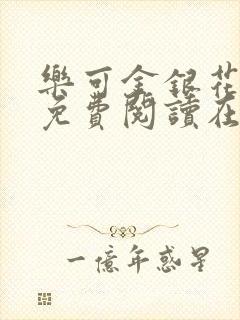 樂可金銀花
免費閱讀在
一億年惑星